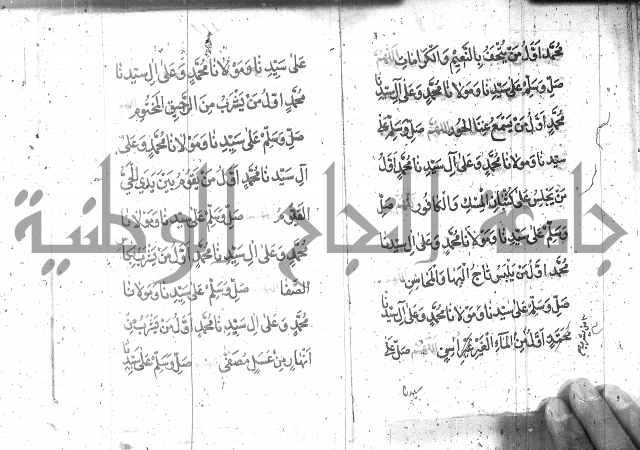 محمد اول من يتحف بالنعيم والكرامات اللهم
صل وسلم على سيدنا ومولانا محمد وعلى آل سيدنا
محمد اول من يسمع غناء الحور اللهم صل وسلم على
سيدنا ومولانا محمد وعلى آل سيدنا محمد اول
من يجلس على كثبان المسك والكافور اللهم صل
وسلم على سيدنا ومولانا محمد وعلى آل سيدنا
محمد اول من يلبس تاج البها والمحاسن اللهم
صل وسلم على سيدنا ومولانا محمد وعلى آل سيدنا
محمد اول من الماء الغير آسن اللهم صل على
سيدنا
على سيدنا ومولانا محمد وعلى آل سيدنا
محمد اول من يشرب من الرحيق المختوم
صل وسلم على سيدنا ومولانا محمد وعلى
آل سيدنا محمد اول من يقوم بين يدي الحي
القيوم صل وسلم على سيدنا ومولانا
محمد وعلى آل سيدنا محمد اول من
الصفا صل وسلم على سيدنا ومولانا
محمد وعلى آل سيدنا محمد اول من يشرب من
انهار من عسل مصفى صل وسلم على سيدنا
جامعة النجاح الوطنية